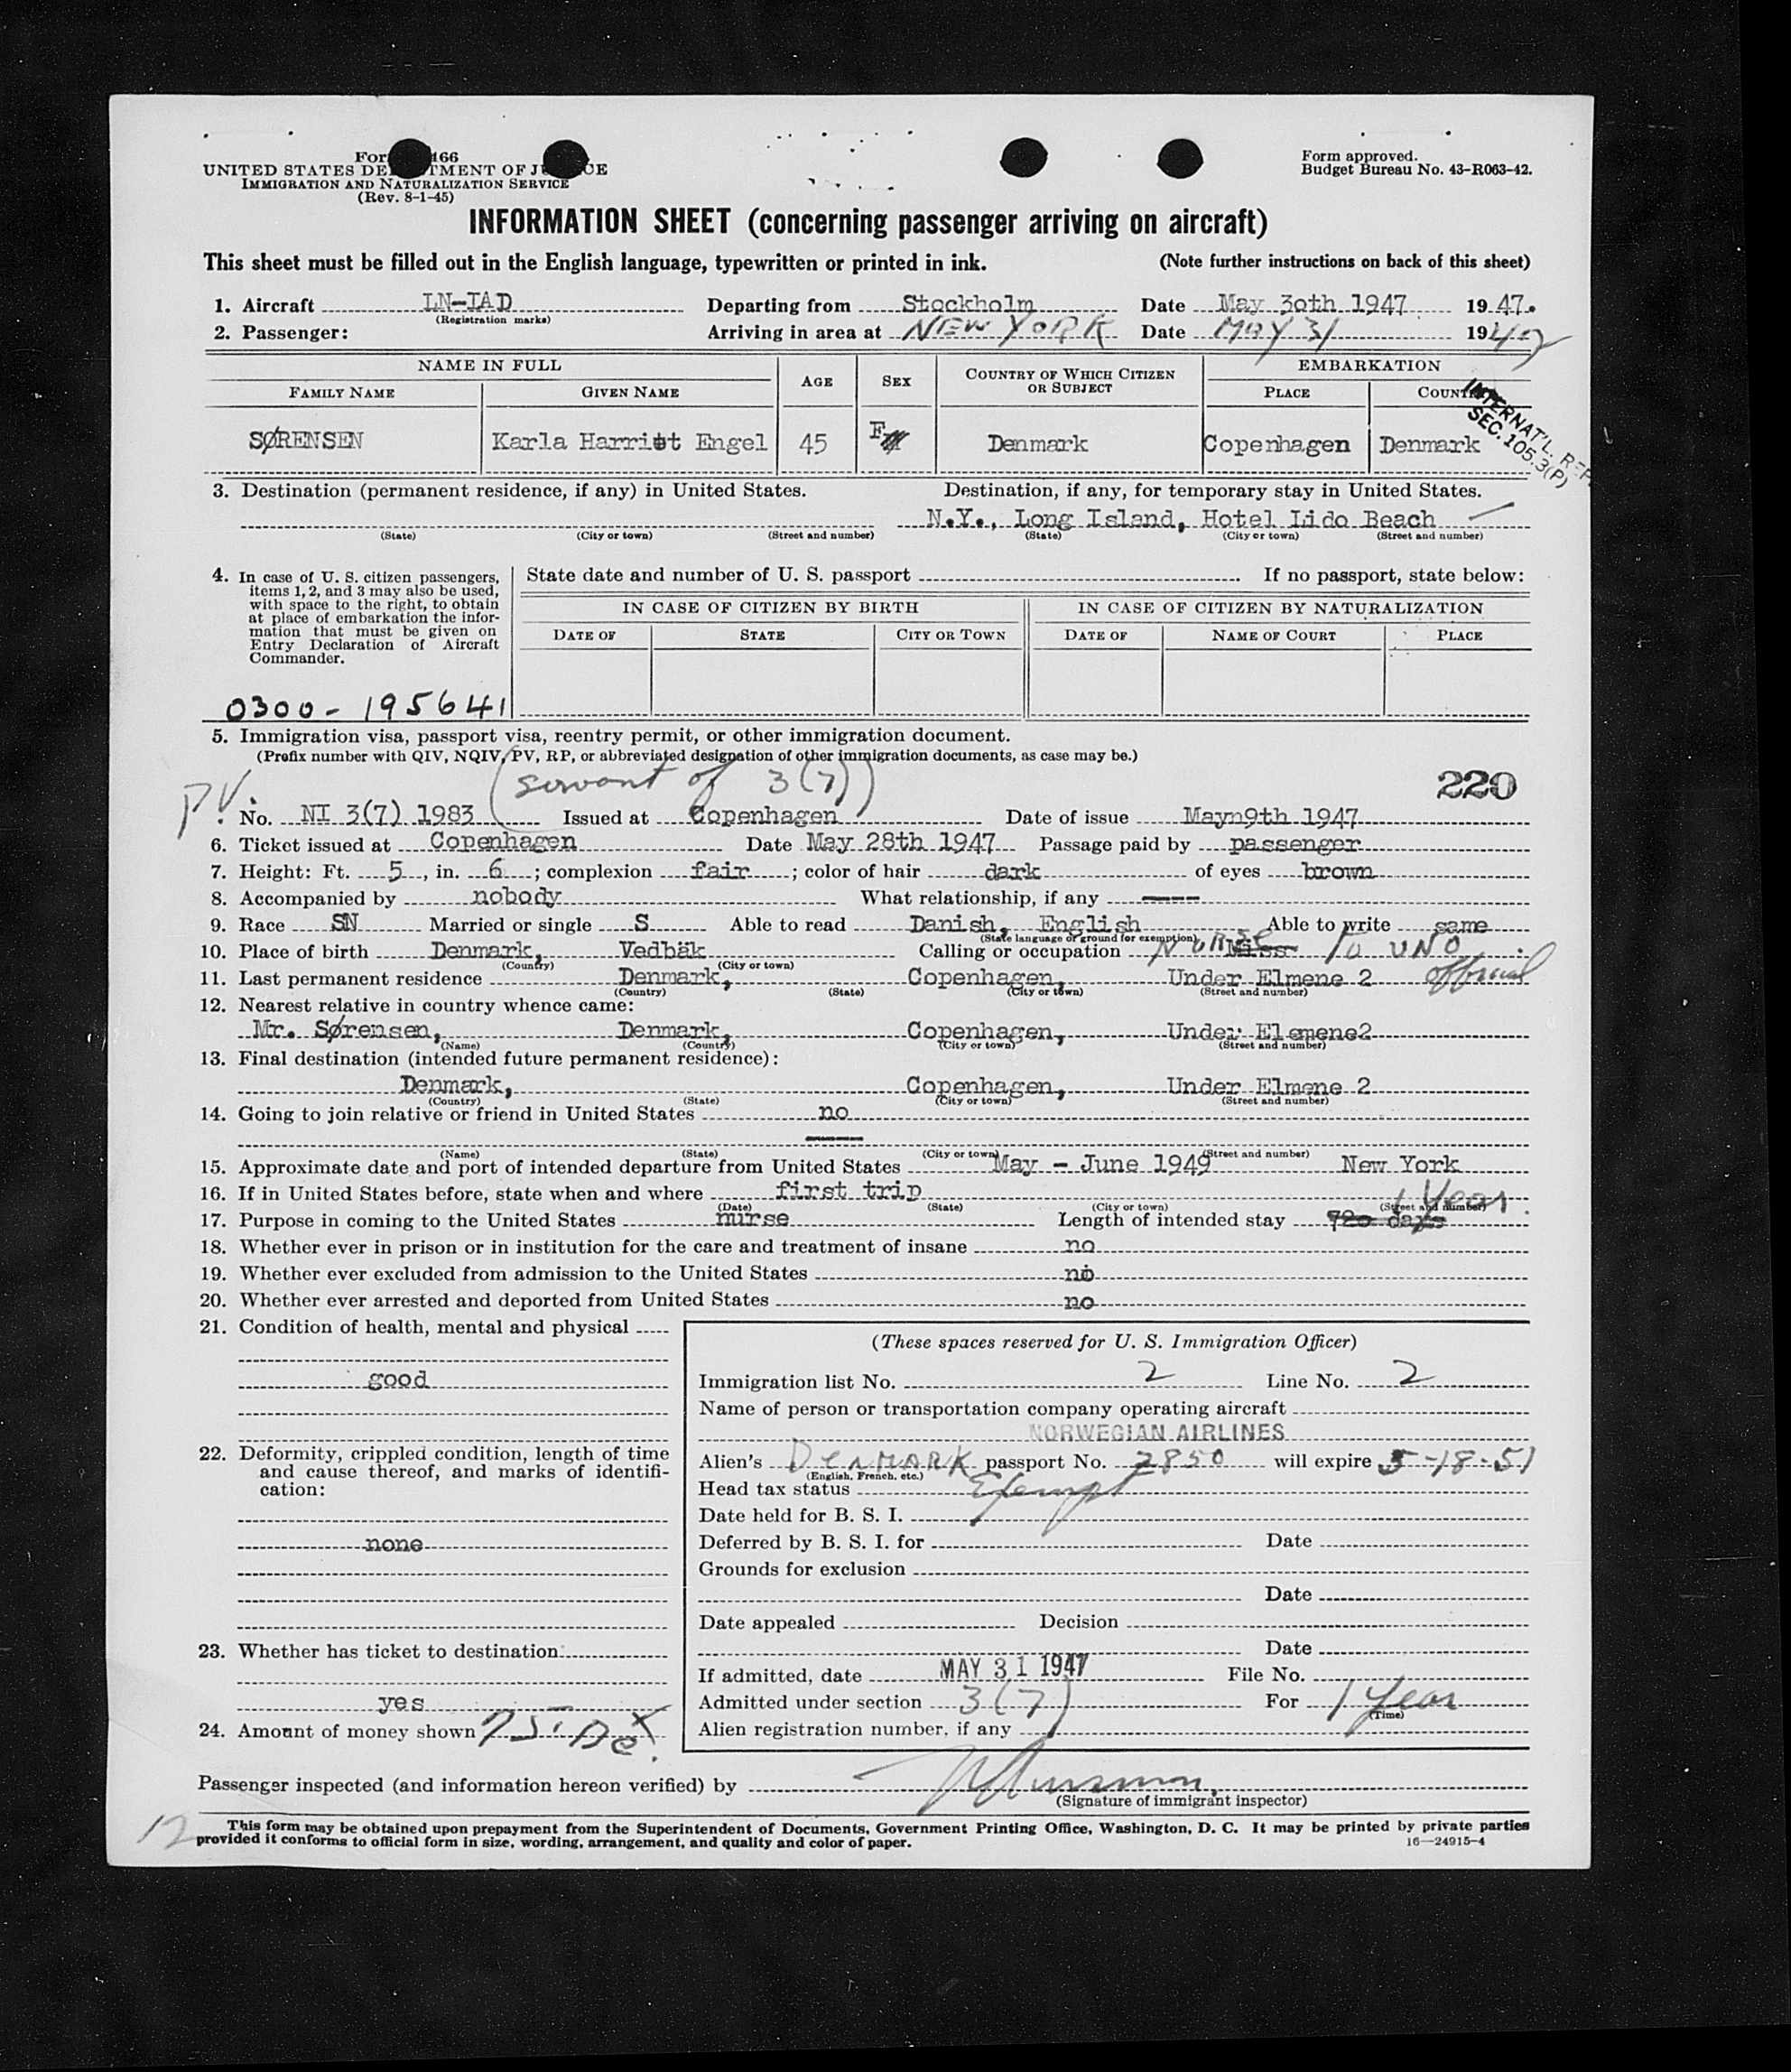 For 166
UNITED STATES DE TMENT OF J CE
IMMIGRATION AND NATURALIZATION SERVICE
(Rev. 8-1-45)
Form approved.
Budget Bureau No. 43-R063-42.
INFORMATION SHEET (concerning passenger arriving on aircraft)
This sheet must be filled out in the English language, typewritten or printed in ink. (Note further instructions on back of this sheet)
1. Aircraft LN-IAD Departing from Stockholm Date May 30th 1947 1947.
(Registration marks)
2. Passenger: Arriving in area at NEW YORK Date MAY 31 1947
NAME IN FULL AGE SEX COUNTRY OF WHICH CITIZEN OR SUBJECT EMBARKATION
FAMILY NAME GIVEN NAME PLACE COUNTRY
INTERNAT'L. REP.
SEC. 105.3(P)
SØRENSEN Karla Harriet Engel 45 F Denmark Copenhagen Denmark
3. Destination (permanent residence, if any) in United States. Destination, if any, for temporary stay in United States.
N.Y., Long Island, Hotel Lido Beach
(State) (City or town) (Street and number) (State) (City or town) (Street and number)
4. In case of U. S. citizen passengers, items 1, 2, and 3 may also be used, with space to the right, to obtain at place of embarkation the information that must be given on Entry Declaration of Aircraft Commander.
State date and number of U. S. passport If no passport, state below:
IN CASE OF CITIZEN BY BIRTH IN CASE OF CITIZEN BY NATURALIZATION
DATE OF STATE CITY OR TOWN DATE OF NAME OF COURT PLACE
0300-195641
5. Immigration visa, passport visa, reentry permit, or other immigration document.
(Prefix number with QIV, NQIV, PV, RP, or abbreviated designation of other immigration documents, as case may be.)
(servant of 3(7)) 220
P.V. No. NI 3(7) 1983 Issued at Copenhagen Date of issue Mayn9th 1947
6. Ticket issued at Copenhagen Date May 28th 1947 Passage paid by passenger
7. Height: Ft. 5, in. 6; complexion fair; color of hair dark of eyes brown
8. Accompanied by nobody What relationship, if any ----
9. Race SN Married or single S Able to read Danish, English Able to write same
(State language or ground for exemption)
10. Place of birth Denmark, Vedbäk Calling or occupation NURSE Miss TO UNO official
(Country) (City or town)
11. Last permanent residence Denmark, Copenhagen, Under Elmene 2
(Country) (State) (City or town) (Street and number)
12. Nearest relative in country whence came:
Mr. Sørensen, Denmark, Copenhagen, Under Elemene2
(Name) (Country) (City or town) (Street and number)
13. Final destination (intended future permanent residence):
Denmark, Copenhagen, Under Elmene 2
(Country) (State) (City or town) (Street and number)
14. Going to join relative or friend in United States no
(Name) (State) (City or town) (Street and number)
15. Approximate date and port of intended departure from United States May - June 1949 New York
16. If in United States before, state when and where first trip
(Date) (State) (City or town) (Street and number)
1 Year
17. Purpose in coming to the United States nurse Length of intended stay 720 days
18. Whether ever in prison or in institution for the care and treatment of insane no
19. Whether ever excluded from admission to the United States no
20. Whether ever arrested and deported from United States no
21. Condition of health, mental and physical
good
22. Deformity, crippled condition, length of time and cause thereof, and marks of identification:
none
23. Whether has ticket to destination
yes
24. Amount of money shown
(These spaces reserved for U. S. Immigration Officer)
Immigration list No. 2 Line No. 2
Name of person or transportation company operating aircraft
NORWEGIAN AIRLINES
Alien's DENMARK passport No. 2850 will expire 5-18-51
(English, French, etc.)
Head tax status Exempt
Date held for B. S. I.
Deferred by B. S. I. for Date
Grounds for exclusion
Date
Date appealed Decision
Date
If admitted, date MAY 31 1947 File No.
Admitted under section 3(7) For 1 Year
(Time)
Alien registration number, if any
Passenger inspected (and information hereon verified) by
(Signature of immigrant inspector)
12
This form may be obtained upon prepayment from the Superintendent of Documents, Government Printing Office, Washington, D. C. It may be printed by private parties
provided it conforms to official form in size, wording, arrangement, and quality and color of paper. 16—24915-4